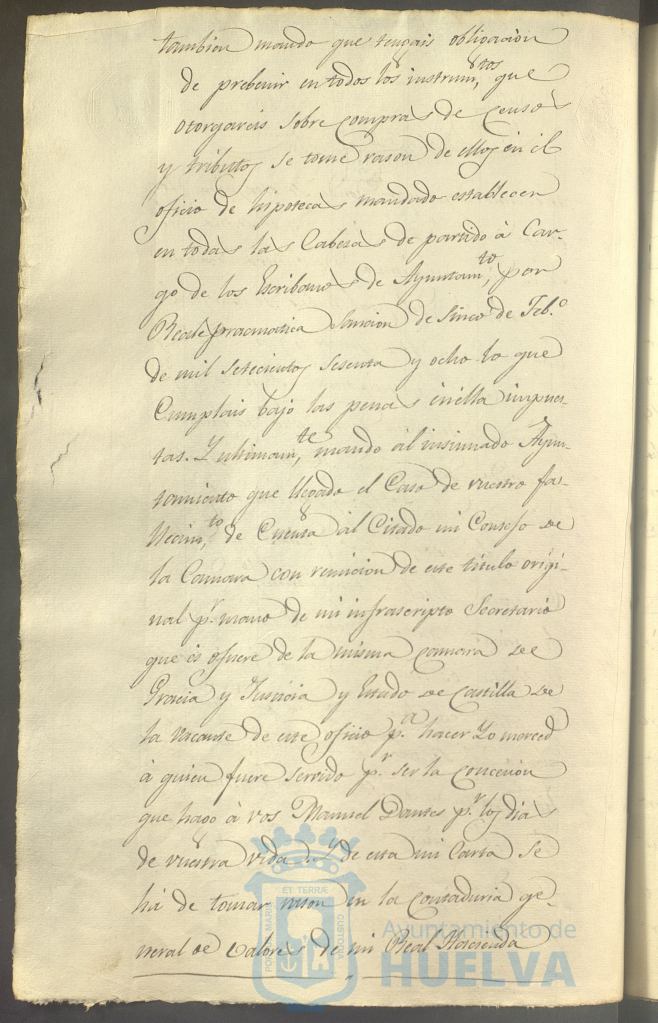 tambien mando que tengais obligacion
de prebenir en todos los instrum.tos que
otorgareis sobre compras de censos
y tributos se tome rason de ellos en el
oficio de hipotecas mandado establecer
en todas las Cabesas de partido à Car-
go de los Escribanos de Ayuntam.to, por
Real pracmatica sancion de sinco de Feb.o
de mil setecientos sesenta y ocho lo que
Cumplais bajo las penas en ella impues-
tas. Y ultimam.te mando al insinuado Ayun-
tamiento que llegado el Caso de vuestro fa-
llecim.to de Cuenta al Citado mi Consejo de
la Camara con remicion de este titulo origi-
nal p.r mano de mi infrascripto Secretario
que es o fuere de la misma camara de
Gracia y Justicia y Estado de Castilla de
la vacante de este oficio p.a hacer Yo merced
à quien fuere servido p.r ser la concecion
que hago à vos Manuel Dantes p.r los dias
de vuestra vida. Y de esta mi Carta se
ha de tomar rason en la contaduria ge-
neral de valores de mi Real Hacienda
PORTUS MARIS ET TERRÆ CUSTODIA
Ayuntamiento de
HUELVA